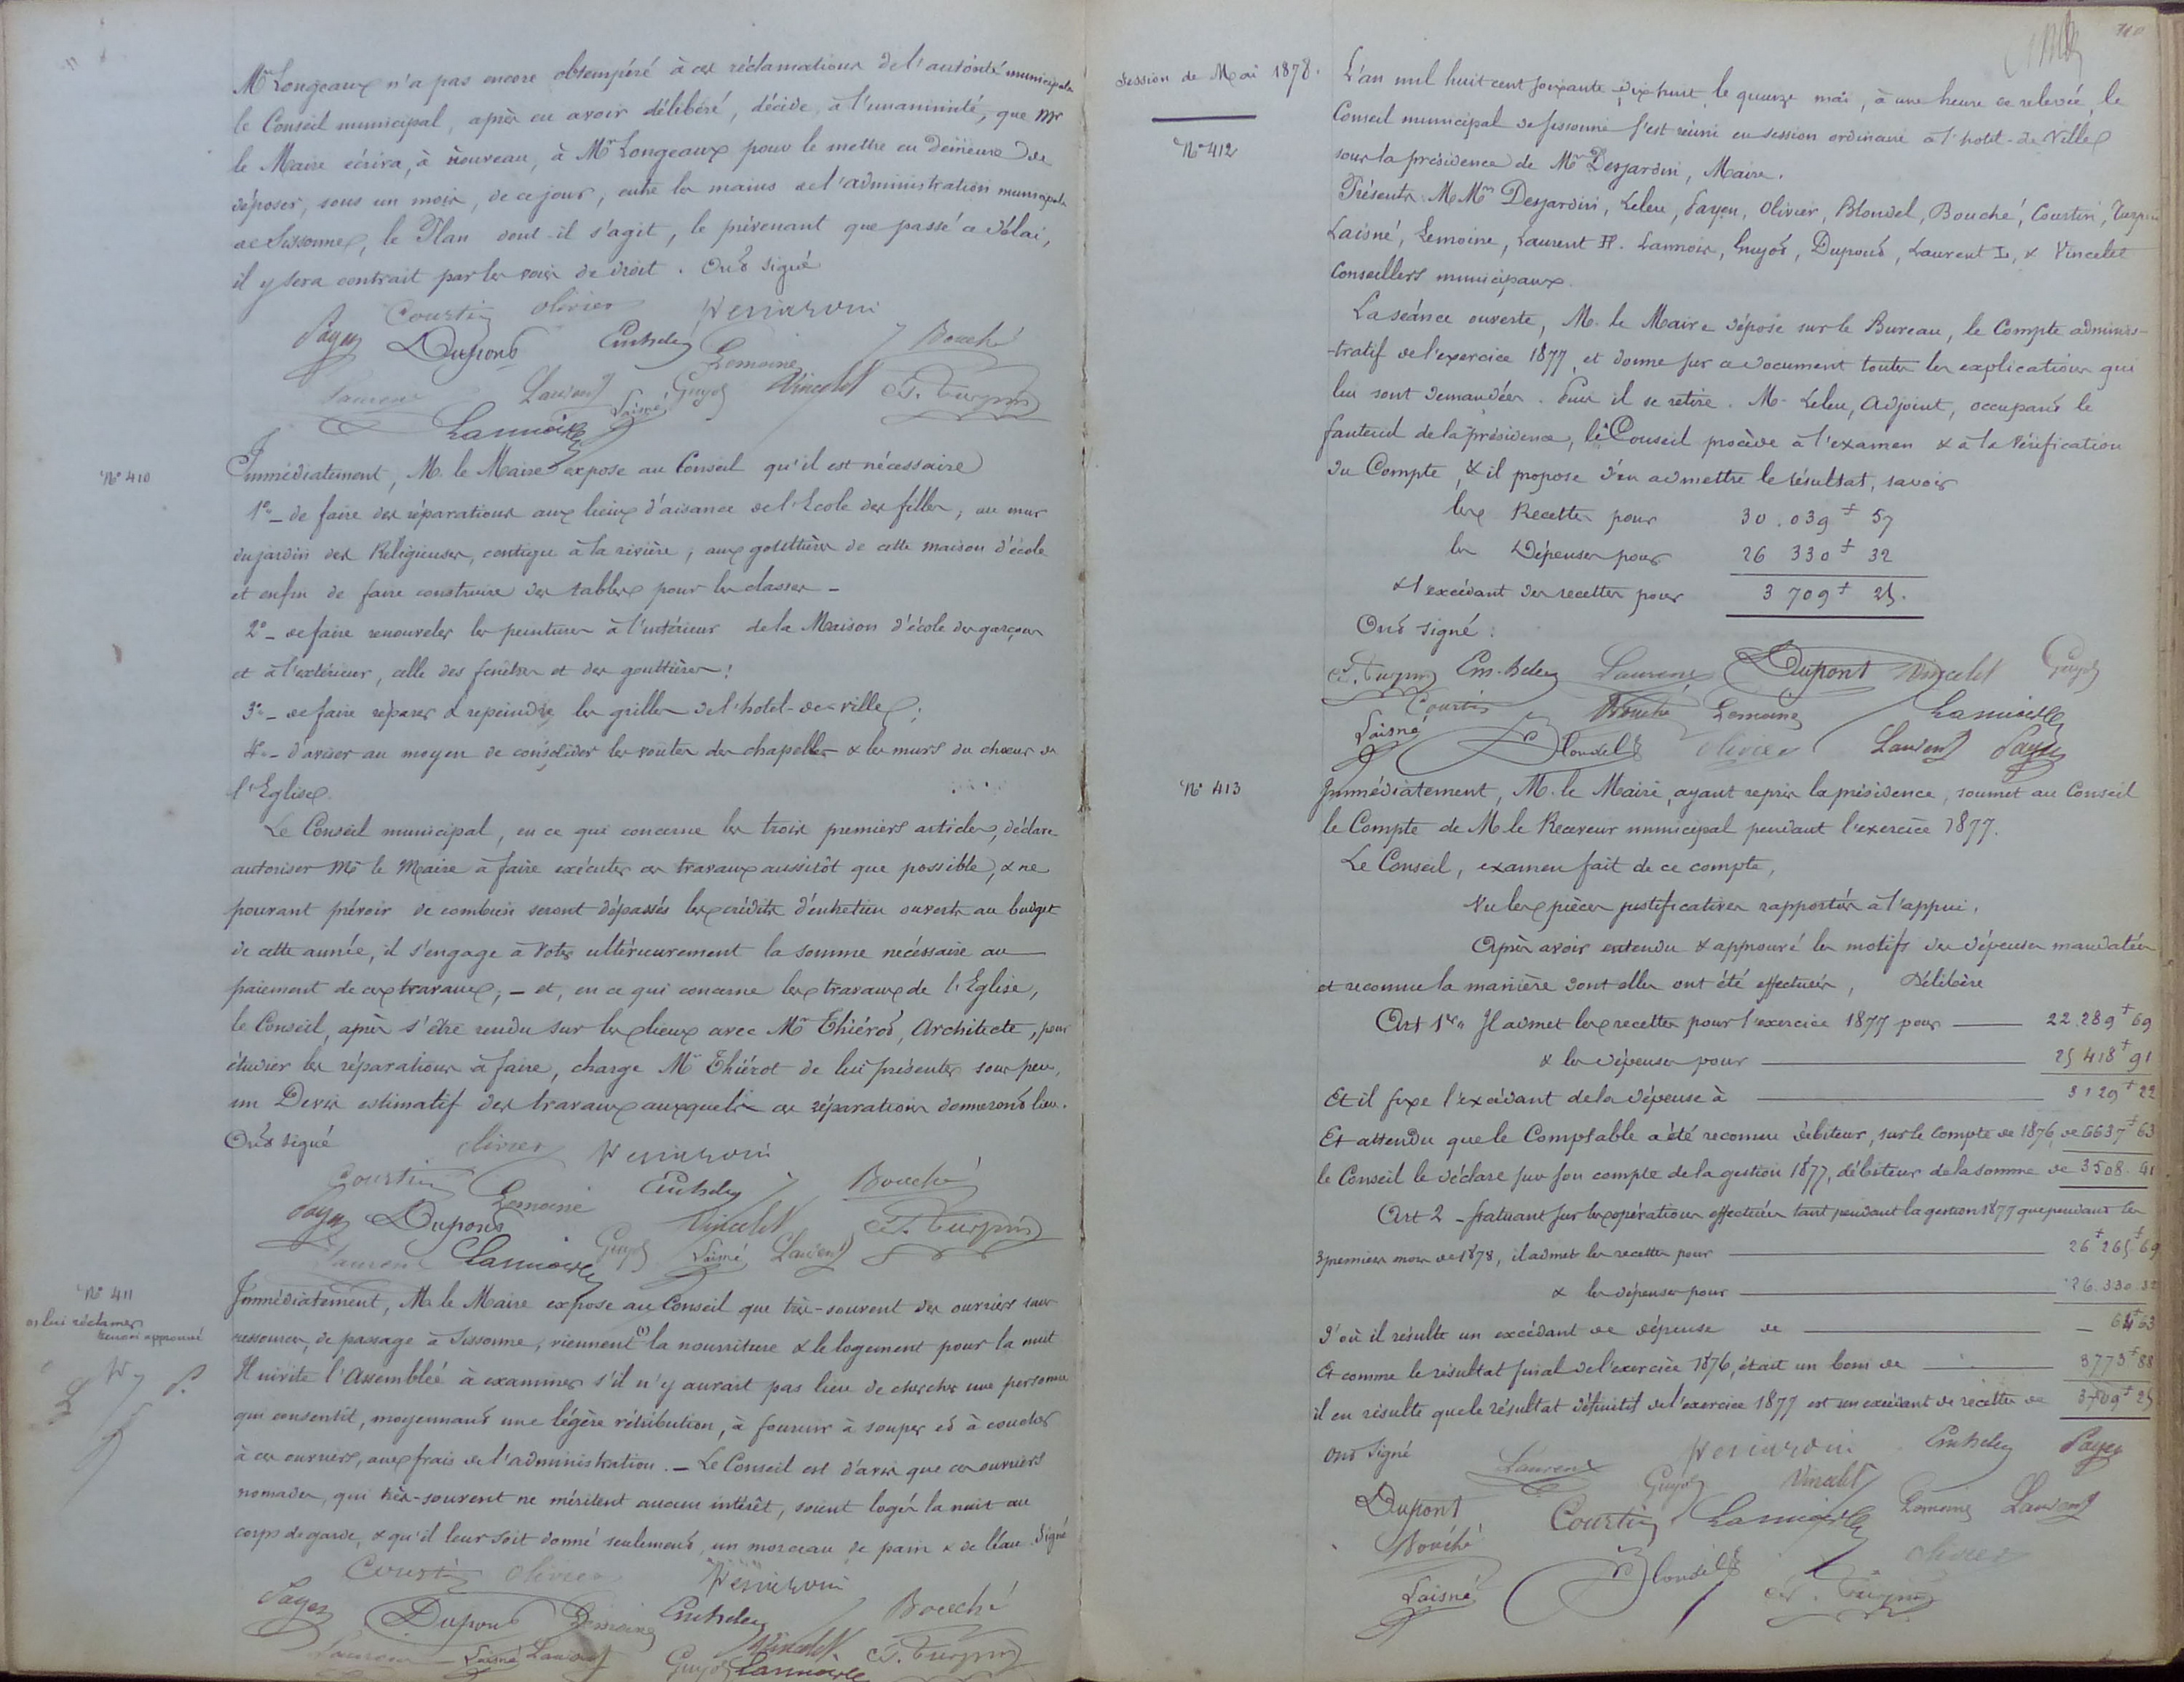 Mr Longeaux n'a pas encore obtempéré à ces réclamations de l'autorité municipale
le Conseil municipal, après en avoir délibéré, décide, à l'unanimité, que Mr
le Maire écrira, à nouveau, à Mr Longeaux pour le mettre en demeure de
déposer, sous un mois, de ce jour, entre les mains de l'administration municipale
de Sissonne, le Plan dont-il s'agit, le prévenant que passé ce délai,
il y sera contraint par les voies de droit. Ont signé
Courtin Olivier Desjardin
Payen Dupont Em. Leleu Bouché
Lemoine
Laurent Laurent Laisné Guyot Vincelet T. Turpin
Lannois
N° 410
Immédiatement, M. le Maire expose au Conseil qu'il est nécessaire
1° - de faire des réparations aux lieux d'aisance de l'Ecole des filles, au mur
du jardin des Religieuses, contigu à la rivière, aux gouttières de cette maison d'école
et enfin de faire construire des tables pour les classes -
2° - de faire renouveler les peintures à l'intérieur de la Maison d'école des garçons
et à l'extérieur, celle des fenêtres et des gouttières;
3° - de faire réparer & repeindre les grilles de l'hotel-de-ville;
4° - d'aviser au moyen de consolider les voûtes des chapelles & les murs du choeur de
l'Eglise.
Le Conseil municipal, en ce qui concerne les trois premiers articles, déclare
autoriser Mr le Maire à faire exécuter ces travaux aussitôt que possible, & ne
pouvant prévoir de combien seront dépassés les crédits d'entretien ouverts au budget
de cette année, il s'engage à voter ultérieurement la somme nécessaire au
paiement de ces travaux; - et, en ce qui concerne les travaux de l'Eglise,
le Conseil, après s'être rendu sur les lieux avec Mr Thiérot, Architecte, pour
étudier les réparations à faire, charge Mr Thiérot de lui présenter sous peu,
un Devis estimatif des travaux auxquels ces réparations donneront lieu.
Ont signé
Olivier Desjardin
Courtin Lemoine Em. Leleu Bouché
Payen Dupont Vincelet T. Turpin
Laurent Lannois Guyot Laisné Laurent
N° 411
Immédiatement, M. le Maire expose au Conseil que très-souvent des ouvriers sans
ressources, de passage à Sissonne, viennent (1) la nourriture & le logement pour la nuit
(1) lui réclamer
renvoi approuvé
Il invite l'Assemblée à examiner s'il n'y aurait pas lieu de chercher une personne
qui consentit, moyennant une légère rétribution, à fournir à souper et à coucher
à ces ouvriers, aux frais de l'administration. - Le Conseil est d'avis que ces ouvriers
nomades, qui très-souvent ne méritent aucun intérêt, soient logés la nuit au
corps de garde, & qu'il leur soit donné seulement, un morceau de pain & de l'eau. Signé
Courtin Olivier Desjardin
Payen Dupont Lemoine Em. Leleu Bouché
Laurent Laisné Laurent Vincelet T. Turpin
Guyot Lannois
Session de Mai 1878.
N° 412
L'an mil huit cent soixante-dix-huit, le quinze mai, à une heure de relevée, le
Conseil municipal de Sissonne s'est réuni en session ordinaire à l'hotel-de-Ville
sous la présidence de Mr Desjardin, Maire.
Présents: MMrs Desjardin, Leleu, Payen, Olivier, Blondel, Bouché, Courtin, Turpin
Laisné, Lemoine, Laurent H. Lannois, Guyot, Dupont, Laurent L, & Vincelet
Conseillers municipaux.
La séance ouverte, M. le Maire dépose sur le Bureau, le Compte adminis-
-tratif de l'exercice 1877, et donne sur ce document toutes les explications qui
lui sont demandées. Puis il se retire. M. Leleu, Adjoint, occupant le
fauteuil de la présidence, le Conseil procède à l'examen & à la Vérification
du Compte, & il propose d'en admettre le résultat, savoir
les Recettes pour 30.039 f 57
les Dépenses pour 26 330 f 32
& l'excédant des recettes pour 3 709 f 25.
Ont signé:
T. Turpin Em. Leleu Laurent Dupont Vincelet Guyot
Courtin Bouché Lemoine Lannois
Laisné Blondel Olivier Laurent Payen
N° 413
Immédiatement, M. le Maire, ayant repris la présidence, soumet au Conseil
le Compte de M. le Receveur municipal pendant l'exercice 1877.
Le Conseil, examen fait de ce compte,
Vu les pièces justificatives rapportées à l'appui,
Après avoir entendu & approuvé les motifs des dépenses mandatées
et reconnu la manière dont elles ont été effectuées, Délibère
Art 1er. Il admet les recettes pour l'exercice 1877 pour 22.289 f 69
& les dépenses pour 25 418 f 91
Et il fixe l'excédant de la dépense à 3129 f 22
Et attendu que le Comptable a été reconnu débiteur, sur le compte de 1876, de 6637 f 63
le Conseil le déclare sur son compte de la gestion 1877, débiteur de la somme de 3508. 41
Art 2 - statuant sur les opérations effectuées tant pendant la gestion 1877 que pendant les
3 premiers mois de 1878, il admet les recettes pour 26 265 f 69
& les dépenses pour 26.330.32
D'où il résulte un excédant de dépense de 64 f 63
Et comme le résultat final de l'exercice 1876, était un boni de 3773 f 88
il en résulte que le résultat définitif de l'exercice 1877 est un excédant de recettes de 3709 f 25
Ont signé
Laurent Desjardin Em. Leleu Payen
Dupont Guyot Vincelet
Courtin Lannois Lemoine Laurent
Bouché
Laisné Blondel T. Turpin Olivier